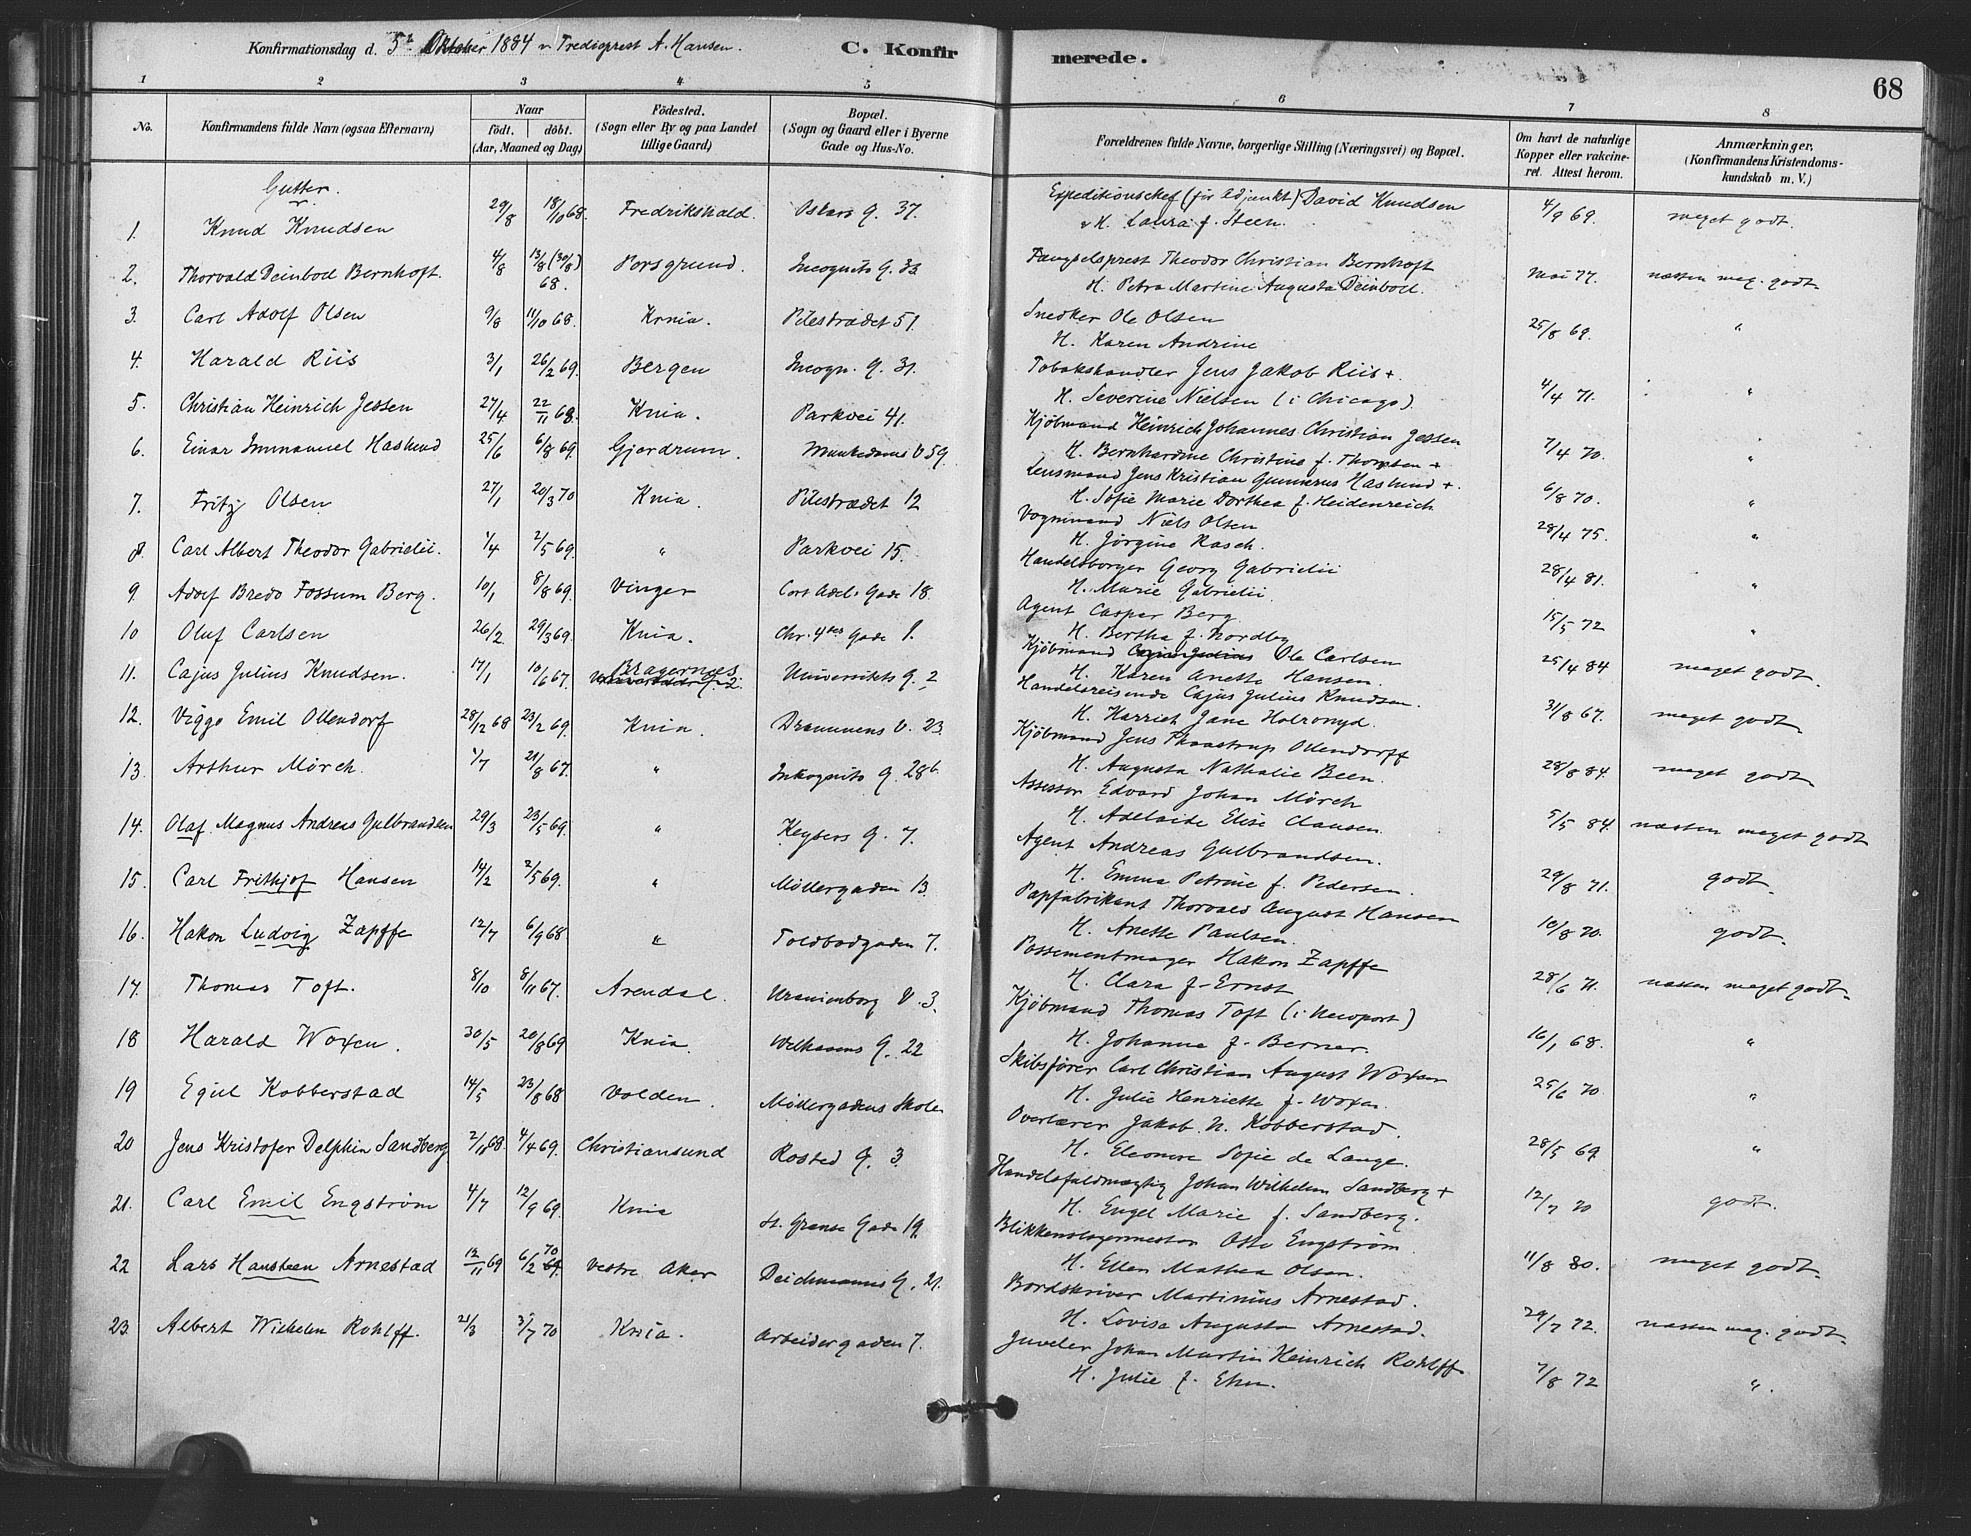 Konfirmationsdag d. 5te Oktober 1884 v. Tredieprest A. Hansen.
C. Konfir merede.
68
1 2 3 4 5 6 7 8
No.
Konfirmandens fulde Navn (ogsaa Efternavn)
Naar
födt. döbt.
(Aar, Maaned og Dag)
Födested.
(Sogn eller By og paa Landet
tillige Gaard)
Bopæl.
(Sogn og Gaard eller i Byerne
Gade og Hus-No.
Forældrenes fulde Navne, borgerlige Stilling (Næringsvei) og Bopæl.
Om havt de naturlige
Kopper eller vakcine-
ret. Attest herom.
Anmærkninger.
(Konfirmandens Kristendoms-
kundskab m. V.)
Gutter.
1. Knud Knudsen 29/8 18/10 68. Fredrikshald. Oskars G. 37. Expeditionschef (før Adjunkt) David Knudsen 4/9 69. meget godt.
H. Laura f. Steen.
2. Thorvald Deinbod Bernhoft 4/8 13/8 (30/8) 68. Porsgrund. Incognito G. 33 Fængselsprest Theodor Christian Bernhoft Mai 77. næsten meg. godt.
H. Petra Martine Augusta Deinbod.
3. Carl Adolf Olsen 9/8 11/10 68. Krnia. Pilestrædet 51. Snedker Ole Olsen 25/8 69. "
H. Karen Andrine
4. Harald Riis 3/1 26/2 69. Bergen Incogn. G. 31. Tobakshandler Jens Jakob Riis +. 4/4 71. "
H. Severine Nielsen (i Chicago).
5. Christian Heinrich Jessen 27/4 22/11 68. Knia. Parkvei 41. Kjøbmand Heinrich Johannes Christian Jessen 7/4 70. "
H. Bernhardine Christine f. Thorsten +
6. Einar Immanuel Haslund 25/6 6/8 69. Gjerdrum. Munkedams V 59. Lensmand Jens Kristian Gunnerus Haslund +. 6/8 70. "
H. Sofie Marie Dorthea f. Heidenreich
7. Fritz Olsen 27/1 20/3 70 Knia. Pilestrædet 12 Vognmand Niels Olsen 28/4 75. "
H. Jørgine Rasch.
8. Carl Albert Theodor Gabrielii. 1/4 2/5 69. " Parkvei 15. Handelsborger Georg Gabrielii 28/4 81. "
H. Marie Gabrielii.
9. Adolf Bredo Fossum Berg. 10/1 8/8 69. Vinger Cort Adels Gade 18. Agent Casper Berg 15/5 72 "
H. Bertha f. Nordby
10 Oluf Carlsen 26/2 29/3 69. Knia. Chr. 4des Gade 1. Kjøbmand Ole Carlsen 25/4 84 meget godt.
H. Karen Anette Hansen.
11. Cajus Julius Knudsen. 17/1 10/6 67. Bragernes Universitets G. 2 Handelsreisende Cajus Julius Knudsen. 31/8 67. meget godt.
H. Harriet Jane Holroyd.
12. Viggo Emil Ollendorf 28/12 68 23/2 69. Knia. Drammens V. 23. Kjøbmand Jens Phaastrup Ollendorff 28/8 84. meget godt.
H. Augusta Nathalie Been.
13. Arthur Mörch. 4/7 21/8 67. " Inkognito G. 28b. Assessor Edvard Johan Mörch 5/5 84. næsten meget godt
H. Adelaide Elise Clausen.
14. Olaf Magnus Andreas Gulbrandsen 29/3 23/5 69. " Keysers G. 7. Agent Andreas Gulbrandsen. 29/8 71. godt.
H. Emma Petrine f. Pedersen.
15. Carl Frithjof Hansen 14/2 2/5 69. " Møllergaden 13. Papfabrikant Thorvald August Hansen 10/8 70. godt.
H. Anette Paulsen.
16. Hakon Ludvig Zapffe 12/7 6/9 68. " Toldbodgaden 7. Possementmager Hakon Zapffe 28/6 71. næsten meget godt.
H. Clara f. Ernst
17. Thomas Toft. 8/10 8/11 67. Arendal. Uranienborg V. 3. Kjøbmand Thomas Toft (i Newport) 16/1 68. "
H. Johanne f. Berner.
18 Harald Woxen. 30/5 20/8 69 Knia. Welhavens G. 22 Skibsfører Carl Christian August Woxen 25/6 70 "
H. Julie Henriette f. Woxen.
19 Egil Kobberstad 14/5 23/8 68 Volden. Møllergadens Skole Overlærer Jakob N. Kobberstad. 28/5 69. "
H. Eleonore Sofie de Lange.
20 Jens Kristofer Delphin Sandberg 2/11 68. 4/4 69. Christiansund Rosted G. 3. Handelsfuldmægtig Johan Wilhelm Sandberg + 12/7 70 godt.
H. Engel Marie f. Sandberg.
21. Carl Emil Engström 4/7 12/9 69. Knia St. Grænse Gade 19. Blikkenslagermester Otto Engström 11/8 80. meget godt.
H. Ellen Mathea Olsen.
22 Lars Hansteen Arnestad 12/11 69 6/2 70 Vestre Aker Deichmanns G. 21. Bordskriver Martinius Arnestad. 29/7 72. næsten meg. godt.
H. Lovise Augusta Arnestad.
23. Albert Wilhelm Rohlff. 21/3 3/7 70 Knia. Arbeidergaden 7. Juveler Johan Martin Heinrich Rohlff 7/8 72 "
H. Julie f.